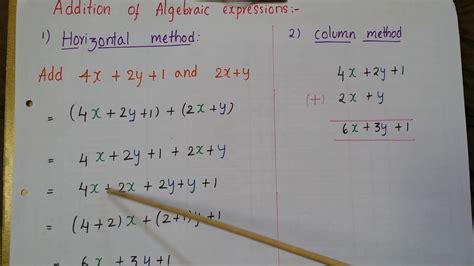 Addition of Algebraic expressions:-
1) Horizontal method:
Add 4x + 2y + 1 and 2x + y
= (4x + 2y + 1) + (2x + y)
= 4x + 2y + 1 + 2x + y
= 4x + 2x + 2y + y + 1
= (4+2)x + (2+1)y + 1
= 6x + 3y + 1
2) column method
4x + 2y + 1
(+) 2x + y
6x + 3y + 1